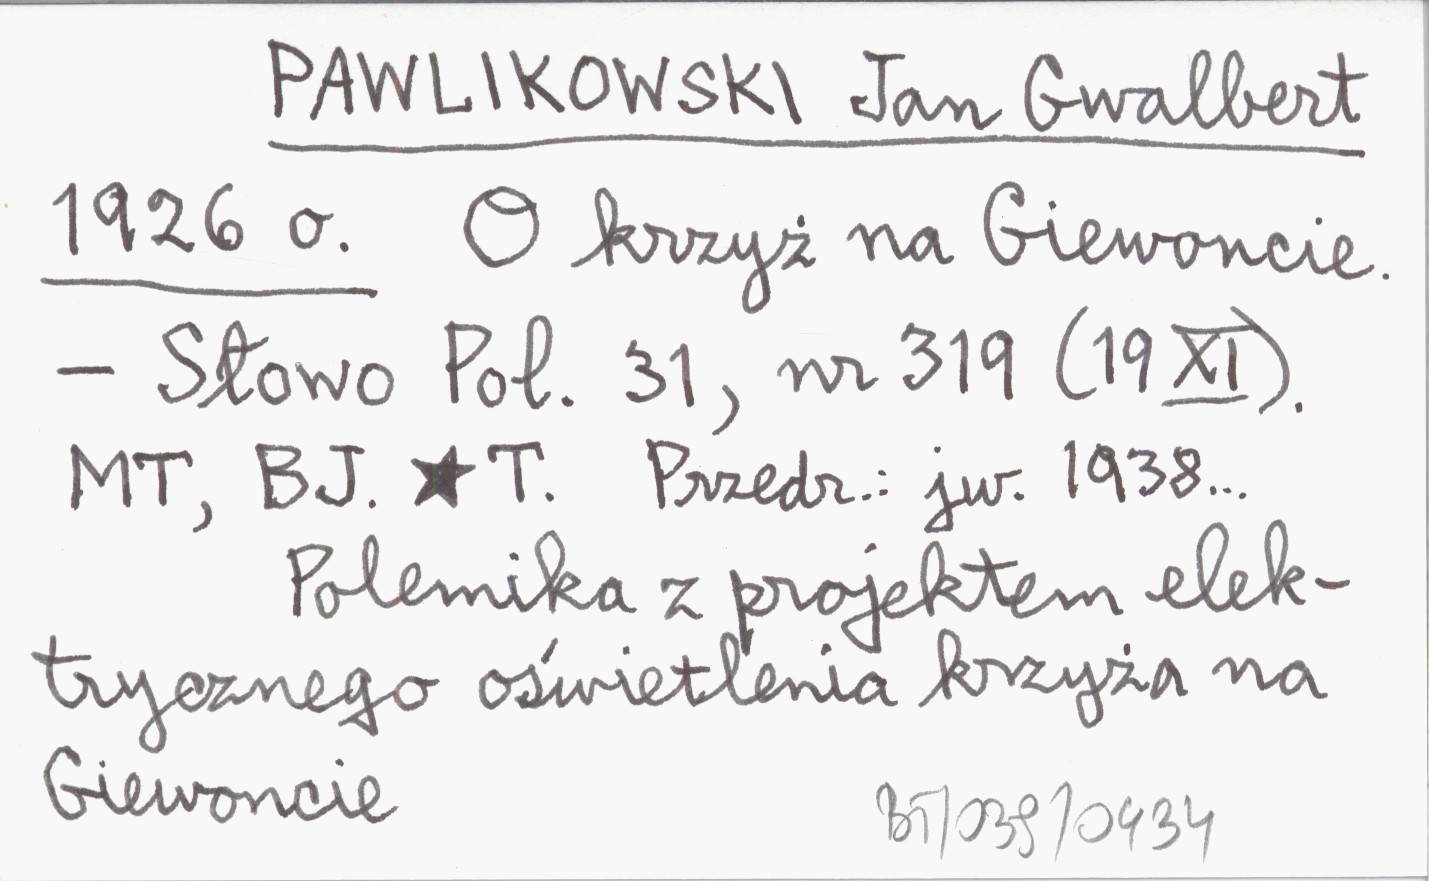 PAWLIKOWSKI Jan Gwalbert
1926 o. O krzyż na Giewoncie.
– Słowo Pol. 31, nr 319 (19 XI).
MT, BJ. ★ T. Przedr.: jw. 1938...
Polemika z projektem elek-
trycznego oświetlenia krzyża na
Giewoncie
BT/039/0434